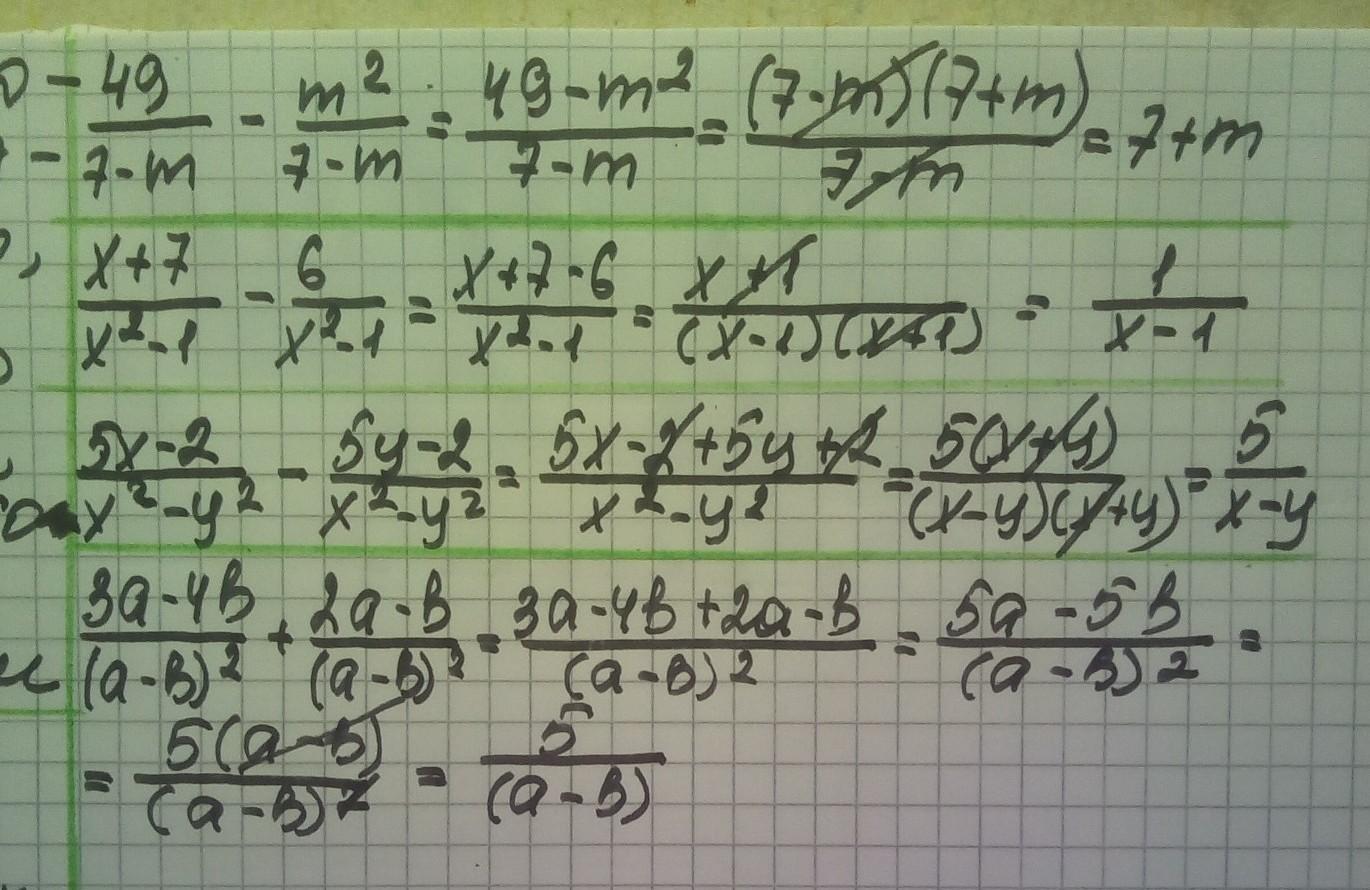 49/(7-m) - m²/(7-m) = (49-m²)/(7-m) = (7-m)(7+m)/(7-m) = 7+m
(x+7)/(x²-1) - 6/(x²-1) = (x+7-6)/(x²-1) = (x+1)/((x-1)(x+1)) = 1/(x-1)
(5x-2)/(x²-y²) - (5y-2)/(x²-y²) = (5x-2+5y+2)/(x²-y²) = 5(x+y)/((x-y)(x+y)) = 5/(x-y)
(3a-4b)/(a-b)² + (2a-b)/(a-b)² = (3a-4b+2a-b)/(a-b)² = (5a-5b)/(a-b)² =
= 5(a-b)/(a-b)² = 5/(a-b)